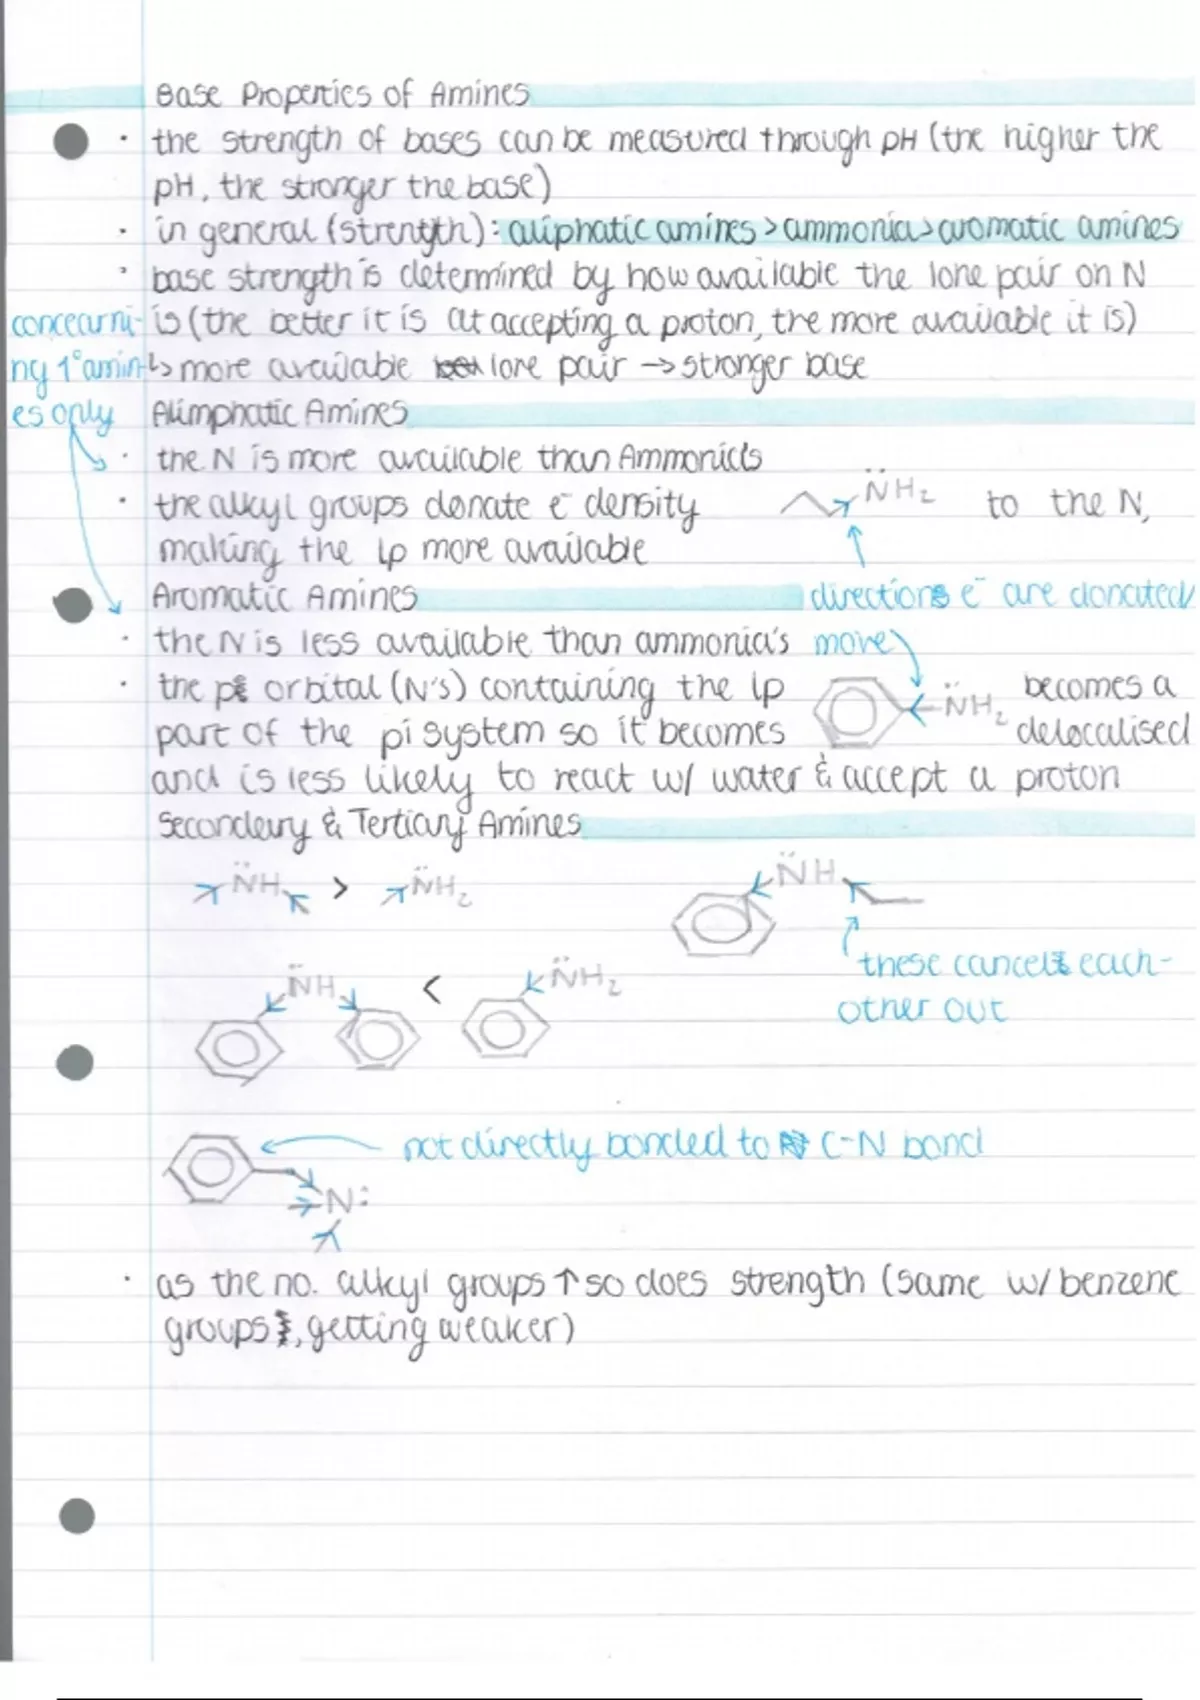 Base Properties of Amines
• the strength of bases can be measured through pH (the higher the
pH, the stronger the base)
• in general (strength): aliphatic amines > ammonia > aromatic amines
• base strength is determined by how available the lone pair on N
is (the better it is at accepting a proton, the more available it is)
↳ more available lone pair → stronger base
concearni-
ng 1° amin-
es only
Alimphatic Amines
• the N is more available than Ammonia's
• the alkyl groups donate e⁻ density N̈H₂ to the N,
making the lp more available
directions e⁻ are donated/
move
Aromatic Amines
• the N is less available than ammonia's
• the p orbital (N's) containing the lp N̈H₂ becomes a
part of the pi system so it becomes delocalised
and is less likely to react w/ water & accept a proton
Secondary & Tertiary Amines
N̈H > N̈H₂
N̈H
these cancels each-
other out
N̈H < N̈H₂
not directly bonded to C-N bond
N:
• as the no. alkyl groups ↑ so does strength (same w/ benzene
groups, getting weaker)